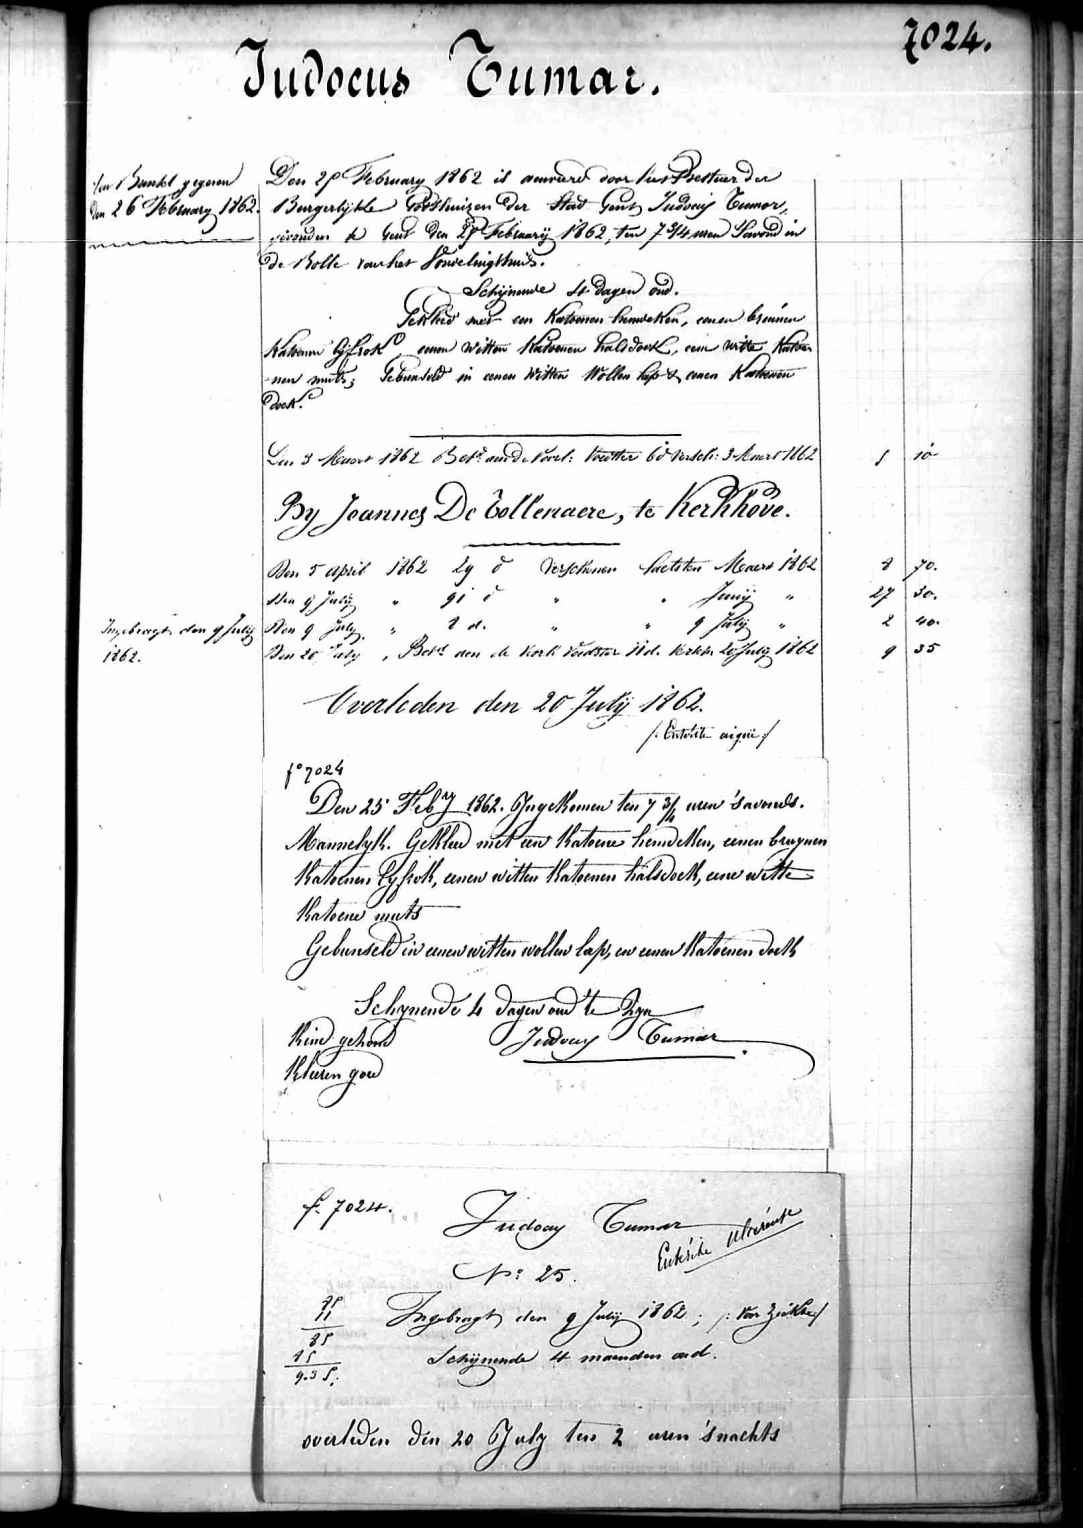 7024.
Judocus Tumar.
Bunsel gegeven
den 26 February 1862.
Den 25 February 1862 is aanveerd door het Bestuer der
Burgerlijke Godshuizen der Stad Gent, Judocus Tumar,
gevonden te Gent den 25 February 1862, ten 7 3/4 uren Savond in
de Rolle van het Vondelingshuis.
Schijnende 4 dagen oud.
Gekleed met een Katoenen hemdeken, eenen bruinen
Katoenen lijfrok, eenen witten Katoenen halsdoek, eene witte Katoe-
-nen muts; Gebunseld in eenen Witten Wollen lap & eenen Katoenen
doek.
Den 3 Maert 1862 Bet. aen de Voedster 6 d versch: 3 Maert 1862 5 10
By Joannes De Tollenaere, te Kerkhove.
Den 5 april 1862 29 d Verschenen laetsten Maert 1862 8 70.
Den 9 July " 91 d " " Junij " 27 30.
Ingebragt den 9 July
1862.
Den 9 July " 8 d. " " 9 July " 2 40.
Den 20 July " Bet. aen de Voedster 11 d. 20 July 1862 9 35
Overleden den 20 Julij 1862.
/: Entérite aigüe :/
f° 7024
Den 25 Feby 1862. Ingekomen ten 7 3/4 uren 's avonds.
Mannelyk. Gekleed met een Katoene hemdeken, eenen bruynen
Katoenen lyfrok, eenen witten Katoenen halsdoek, eene witte
Katoene muts
Gebunseld in eenen witten wollen lap, en eenen Katoenen doek
Schynende 4 dagen oud te Zyn
Kind gezond Judocus Tumar
Kleeren goed
f. 7024.
Judocus Tumar
Entérite ulcéreuse
N° 25.
Ingebragt den 9 July 1862; /: Van Ziekte :/
85
11
85
85
9.35.
Schijnende 4 maenden oud.
overleden den 20 July ten 2 uren 's nachts